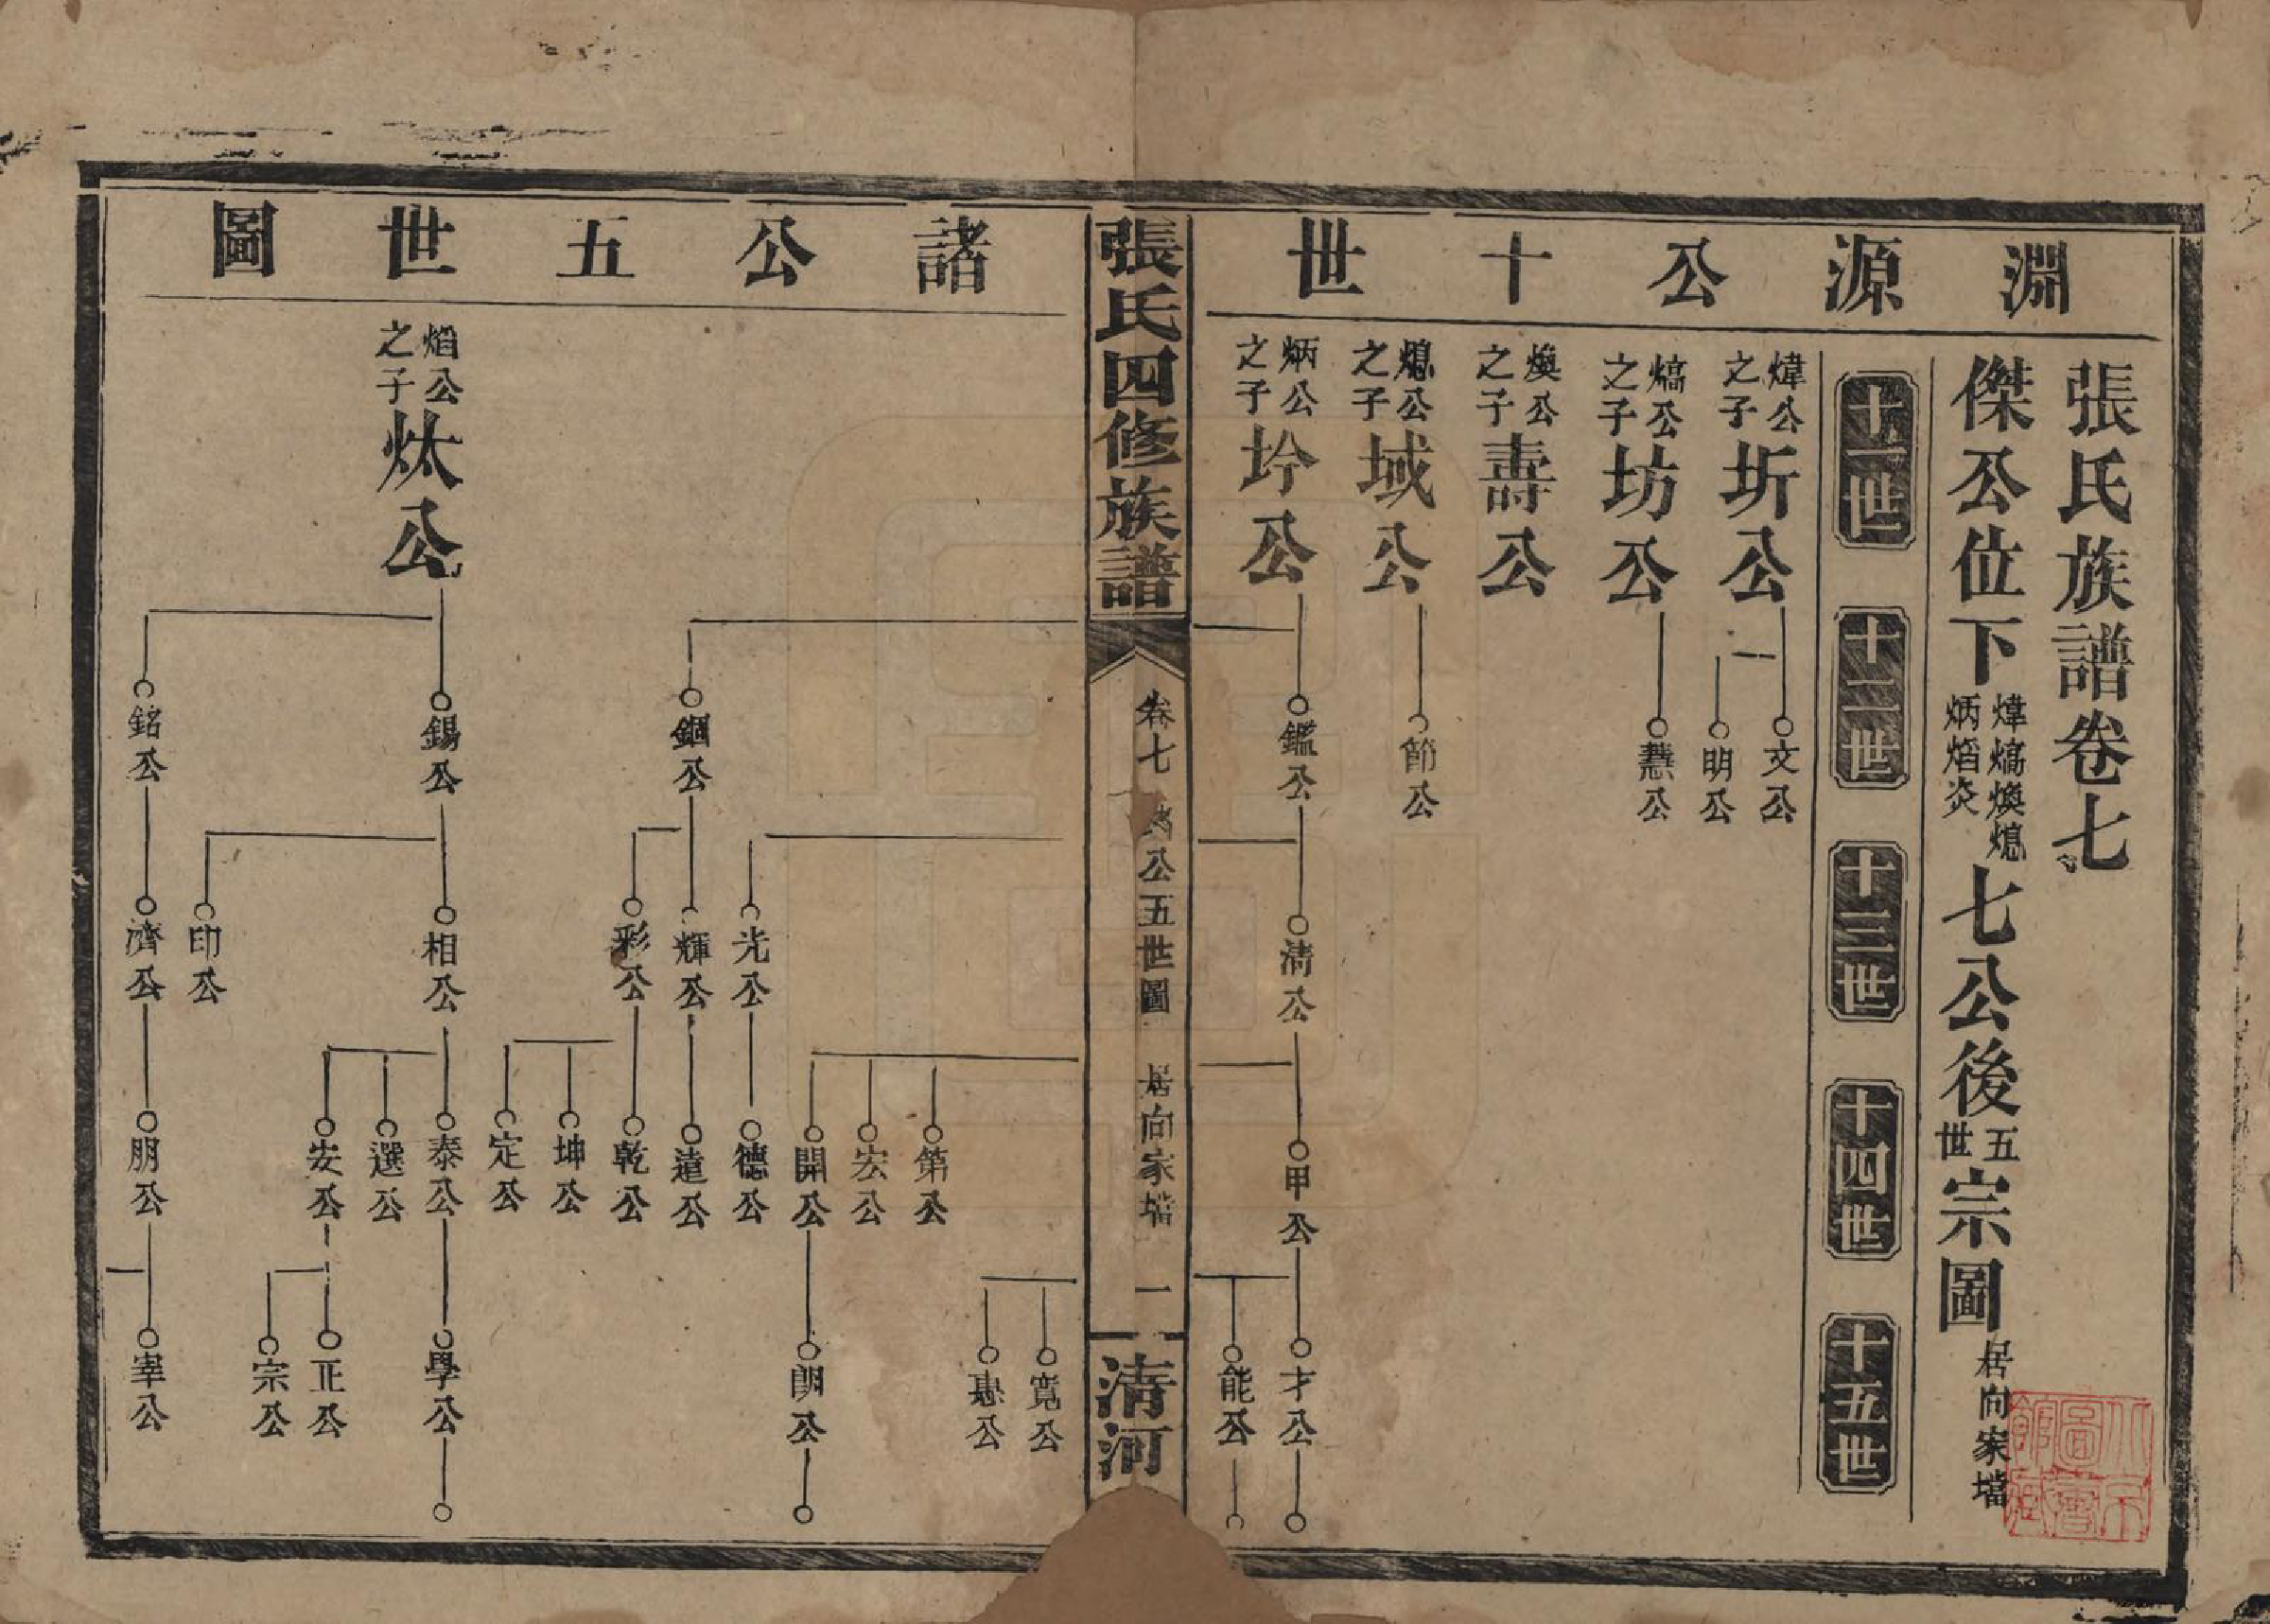 淵源公十世
張氏族譜卷七
傑公位下
煒熇煥熄
炳焰炎
七公後
五世
宗圖
居向家壋
十一世
十二世
十三世
十四世
十五世
煒公之子
圻公
文公
明公
熇公之子
坊公
慧公
煥公之子
壽公
熄公之子
域公
節公
炳公之子
坅公
鑑公
清公
甲公
才公
能公
張氏四修族譜
卷七
公五世圖
居向家壋
一
清河
諸公五世圖
寬公
惠公
第公
宏公
開公
朗公
光公
德公
錮公
輝公
遠公
彩公
乾公
坤公
定公
焰公之子
炏公
錫公
相公
泰公
學公
選公
安公
正公
宗公
印公
銘公
濟公
朋公
宰公